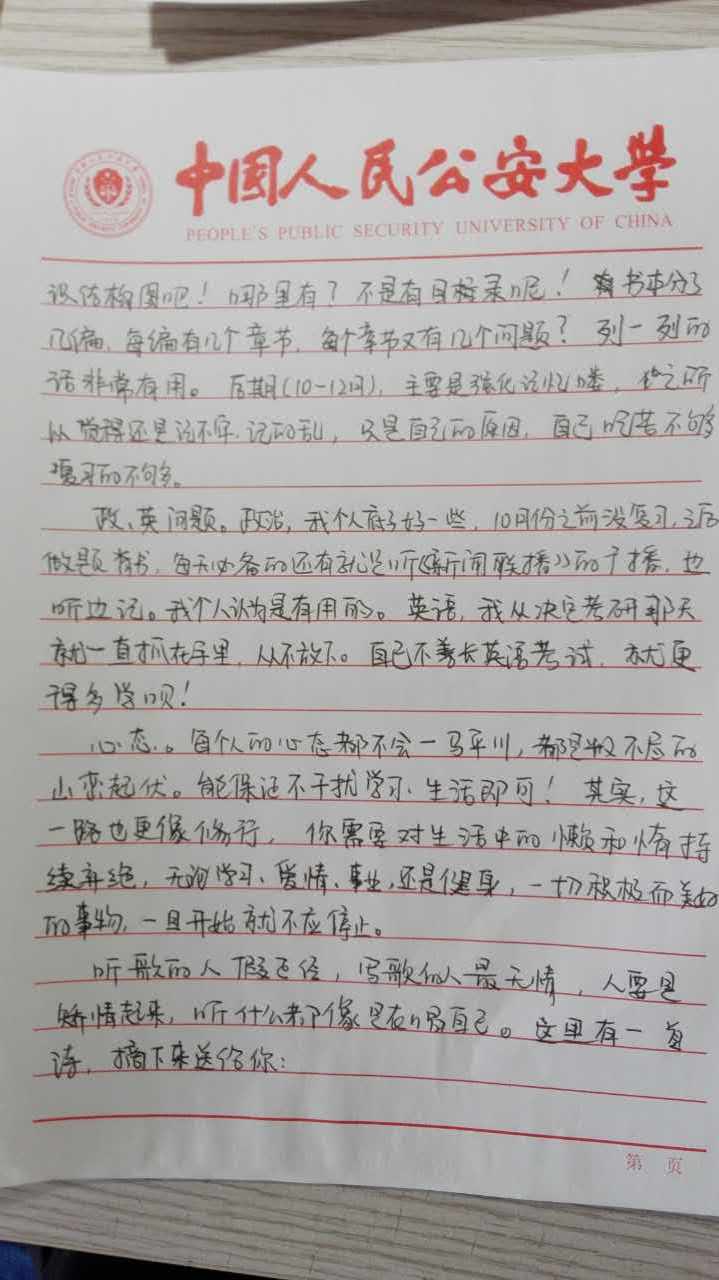 中国人民公安大学
PEOPLE'S PUBLIC SECURITY UNIVERSITY OF CHINA
识结构图吧！哪里有？不是有目录呢！书本分了
几编，每编有几个章节，每个章节又有几个问题？列一列的
话非常有用。后期（10-12月），主要是强化记忆喽，之所
以觉得还是记不牢，记的乱，只是自己的原因，自己吃苦不够
复习的不够。
政、英问题。政治，我个人底子好一些，10月份之前没复习，之后
做题背书，每天必备的还有就是听《新闻联播》的广播，边
听边记。我个人认为是有用的。英语，我从决定考研那天
就一直抓在手里，从不放下。自己不善长英语考试，就更
得多学呗！
心态。每个人的心态都不会一马平川，都是数不尽的
山峦起伏。能保证不干扰学习、生活即可！其实，这
一路也更像修行，你需要对生活中的懒和惰持
续弃绝，无论学习、爱情、事业，还是健身，一切积极而美好
的事物，一旦开始就不应停止。
听歌的人假正经，写歌的人最无情，人要是
矫情起来，听什么都像是在唱自己。这里有一首
诗，摘下来送给你：
第 页